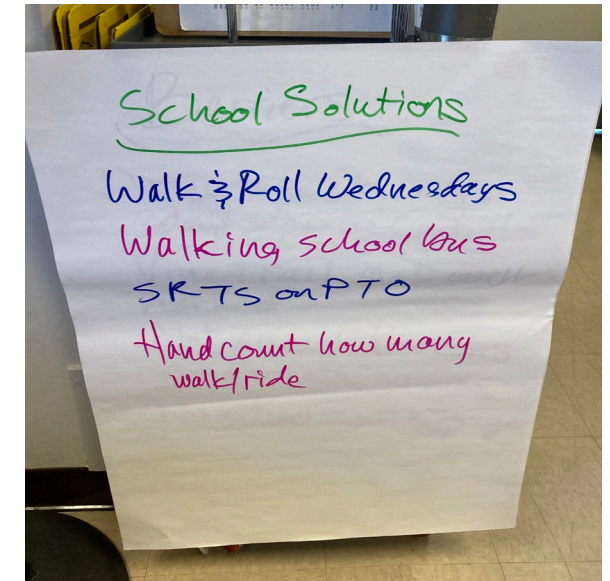 School Solutions
Walk & Roll Wednesdays
Walking school bus
SRTS on PTO
Hand count how many
walk/ride